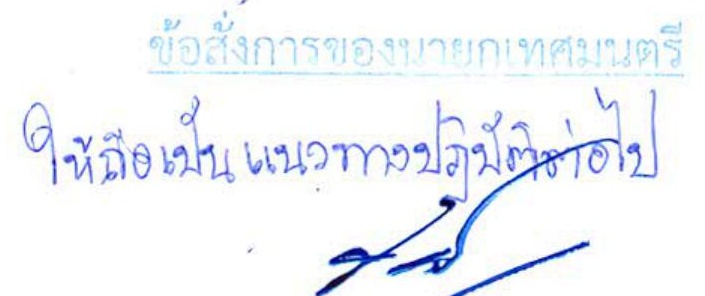 ข้อสั่งการของนายกเทศมนตรี
ให้ถือเป็นแนวทางปฏิบัติต่อไป